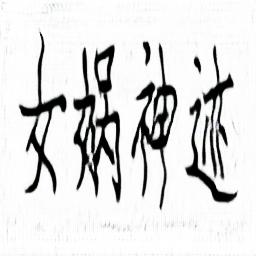 女娲神迹